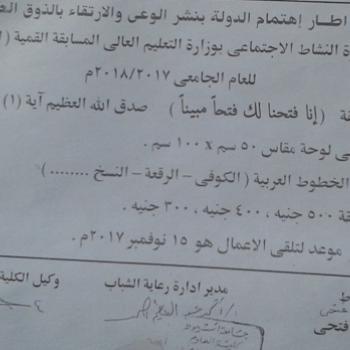 اطار إهتمام الدولة بنشر الوعى والارتقاء بالذوق
ة النشاط الاجتماعى بوزارة التعليم العالى المسابقة القمية
للعام الجامعى ٢٠١٨/٢٠١٧م
(إنا فتحنا لك فتحاً مبيناً) صدق الله العظيم آية (١)
لوحة مقاس ٥٠ سم x ١٠٠ سم .
الخطوط العربية (الكوفى – الرقعة – النسخ ........)
٥٠٠ جنيه ، ٤٠٠ جنيه ، ٣٠٠ جنيه .
موعد لتلقى الاعمال هو ١٥ نوفمبر ٢٠١٧م .
مدير ادارة رعاية الشباب
وكيل الكلية
فتحى